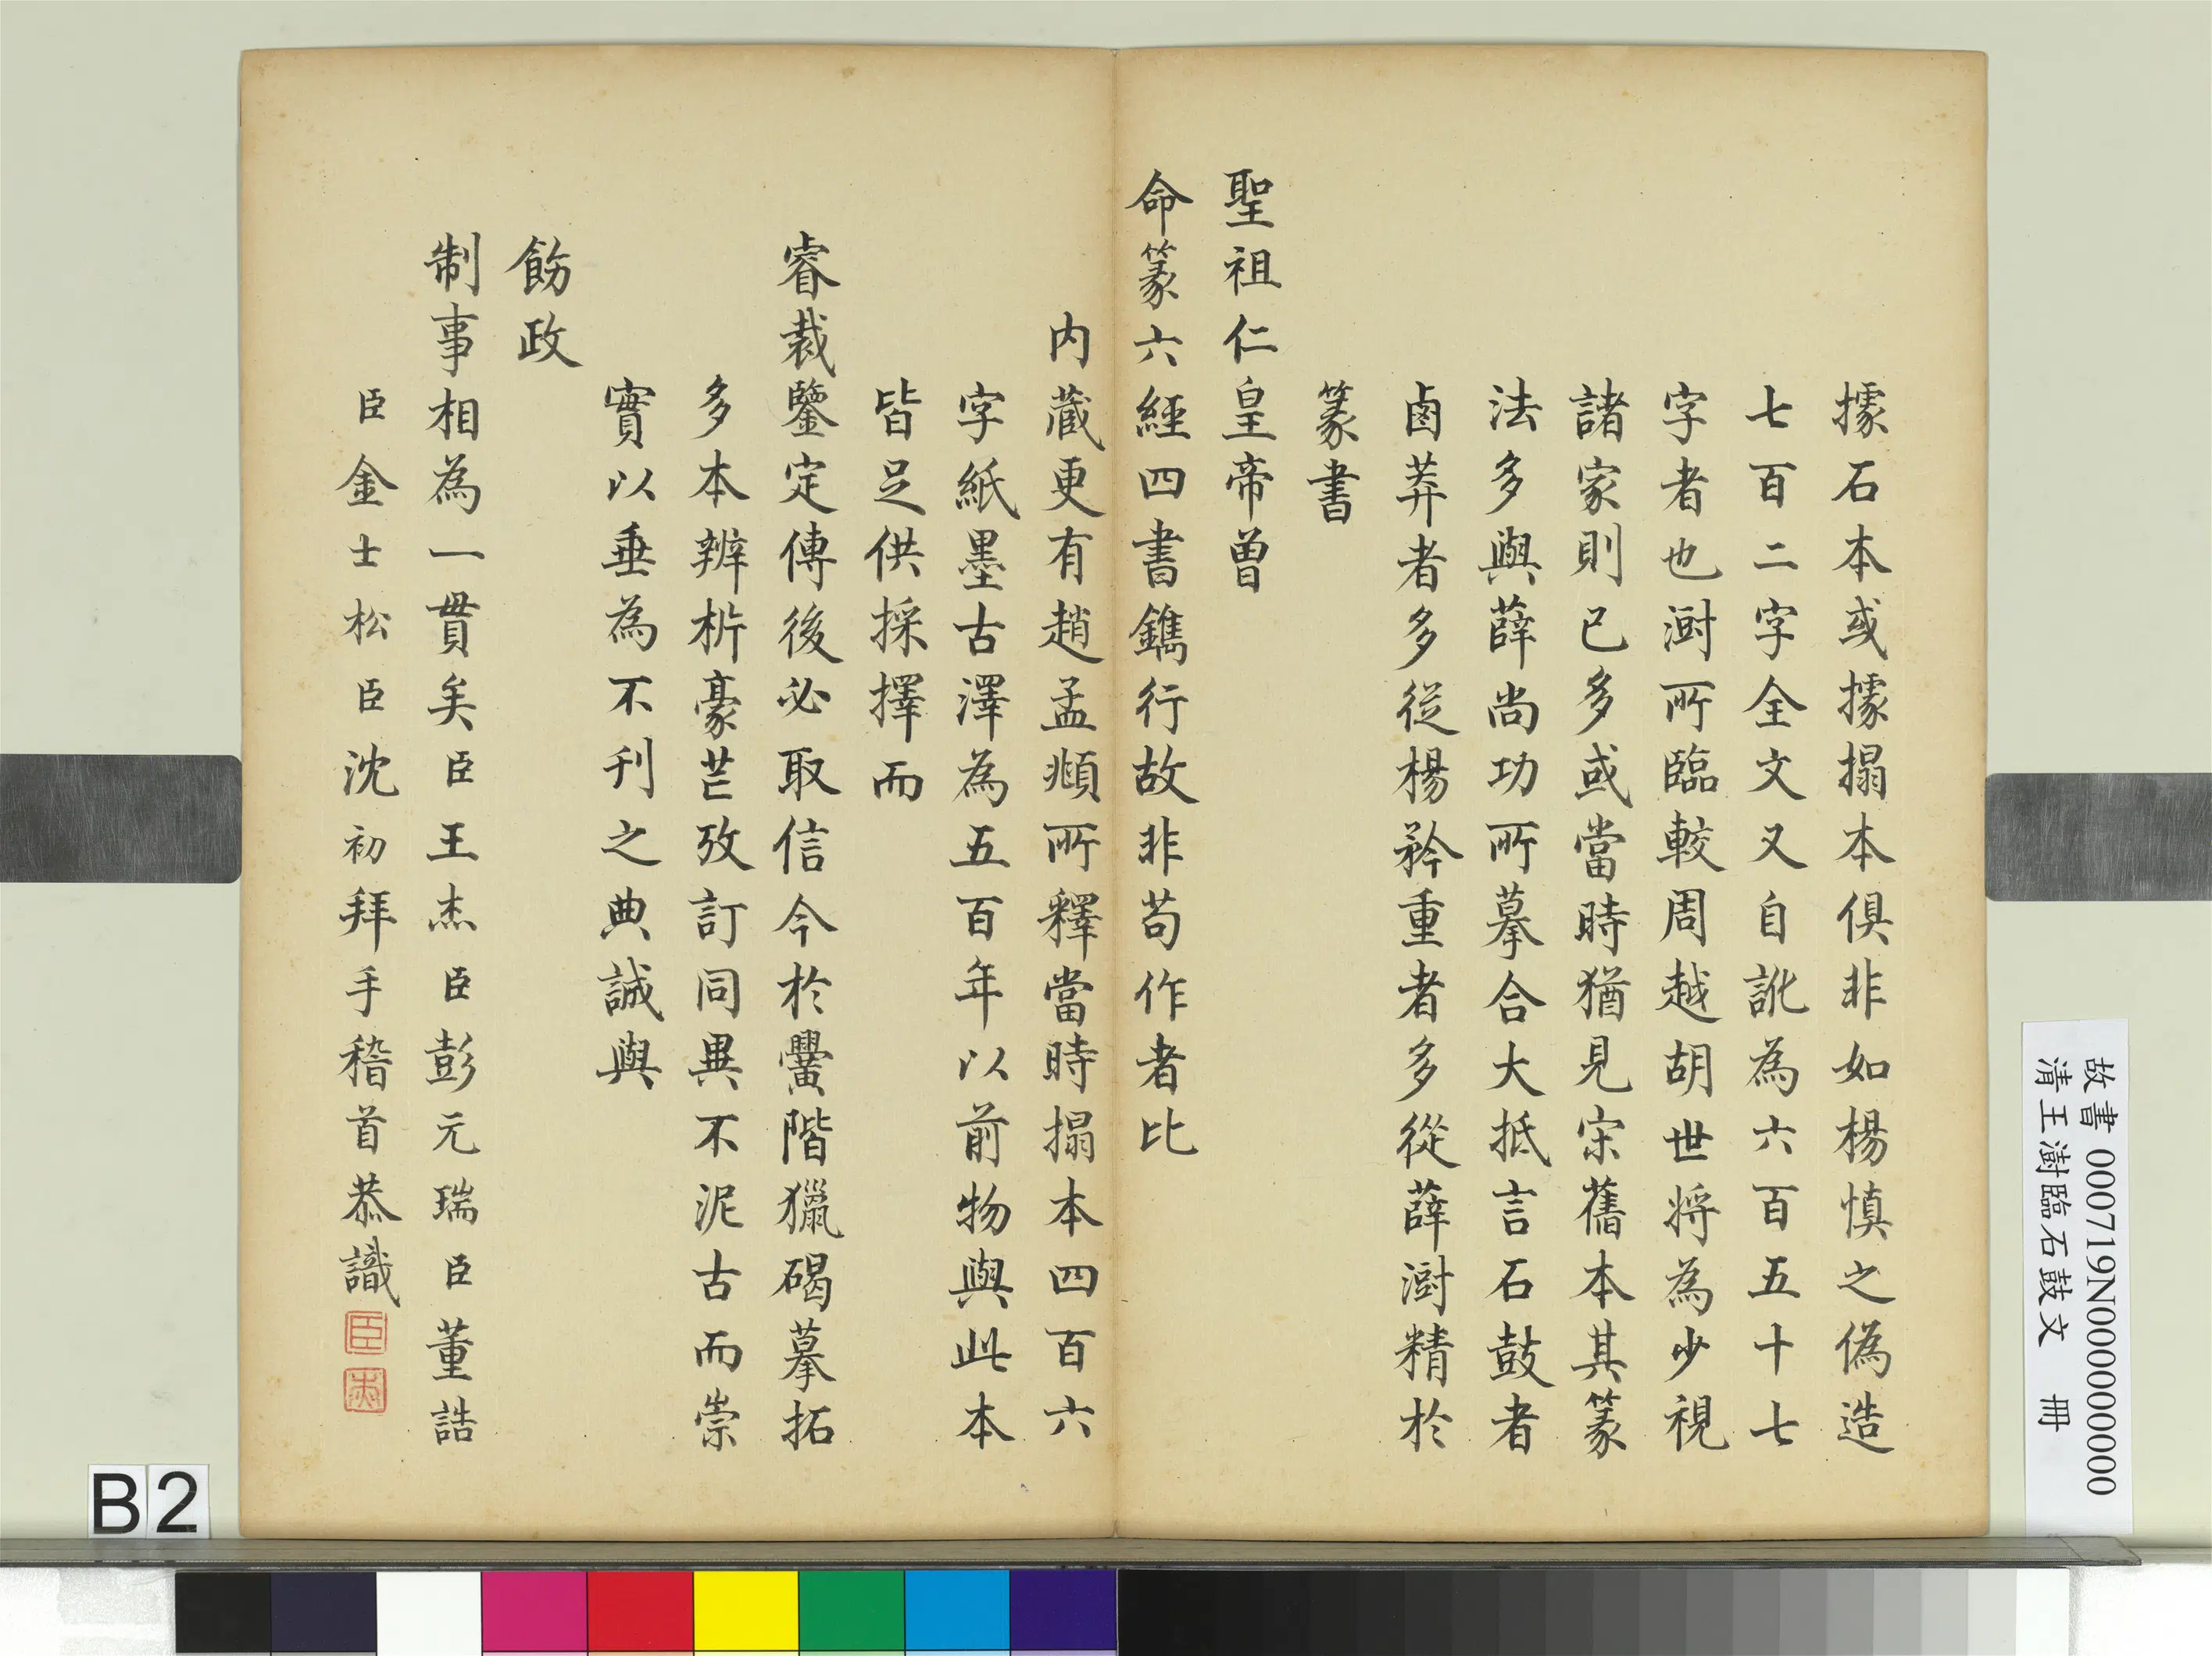 據石本或據搨本俱非如楊慎之偽造
七百二字全文又自訛為六百五十七
字者也澍所臨較周越胡世將為少視
諸家則已多或當時猶見宋舊本其篆
法多與薛尚功所摹合大抵言石鼓者
鹵莽者多從楊矜重者多從薛澍精於
篆書
聖祖仁皇帝曾
命篆六經四書鐫行故非苟作者比
内藏更有趙孟頫所釋當時搨本四百六
字紙墨古澤為五百年以前物與此本
皆足供採擇而
睿裁鑒定傳後必取信今於黌階獵碣摹拓
多本辨析豪芒攷訂同異不泥古而崇
實以垂為不刊之典誠與
飭政
制事相為一貫矣臣王杰臣彭元瑞臣董誥
臣金士松臣沈初拜手稽首恭識
故書 000719N000000000
清王澍臨石鼓文 冊
B2